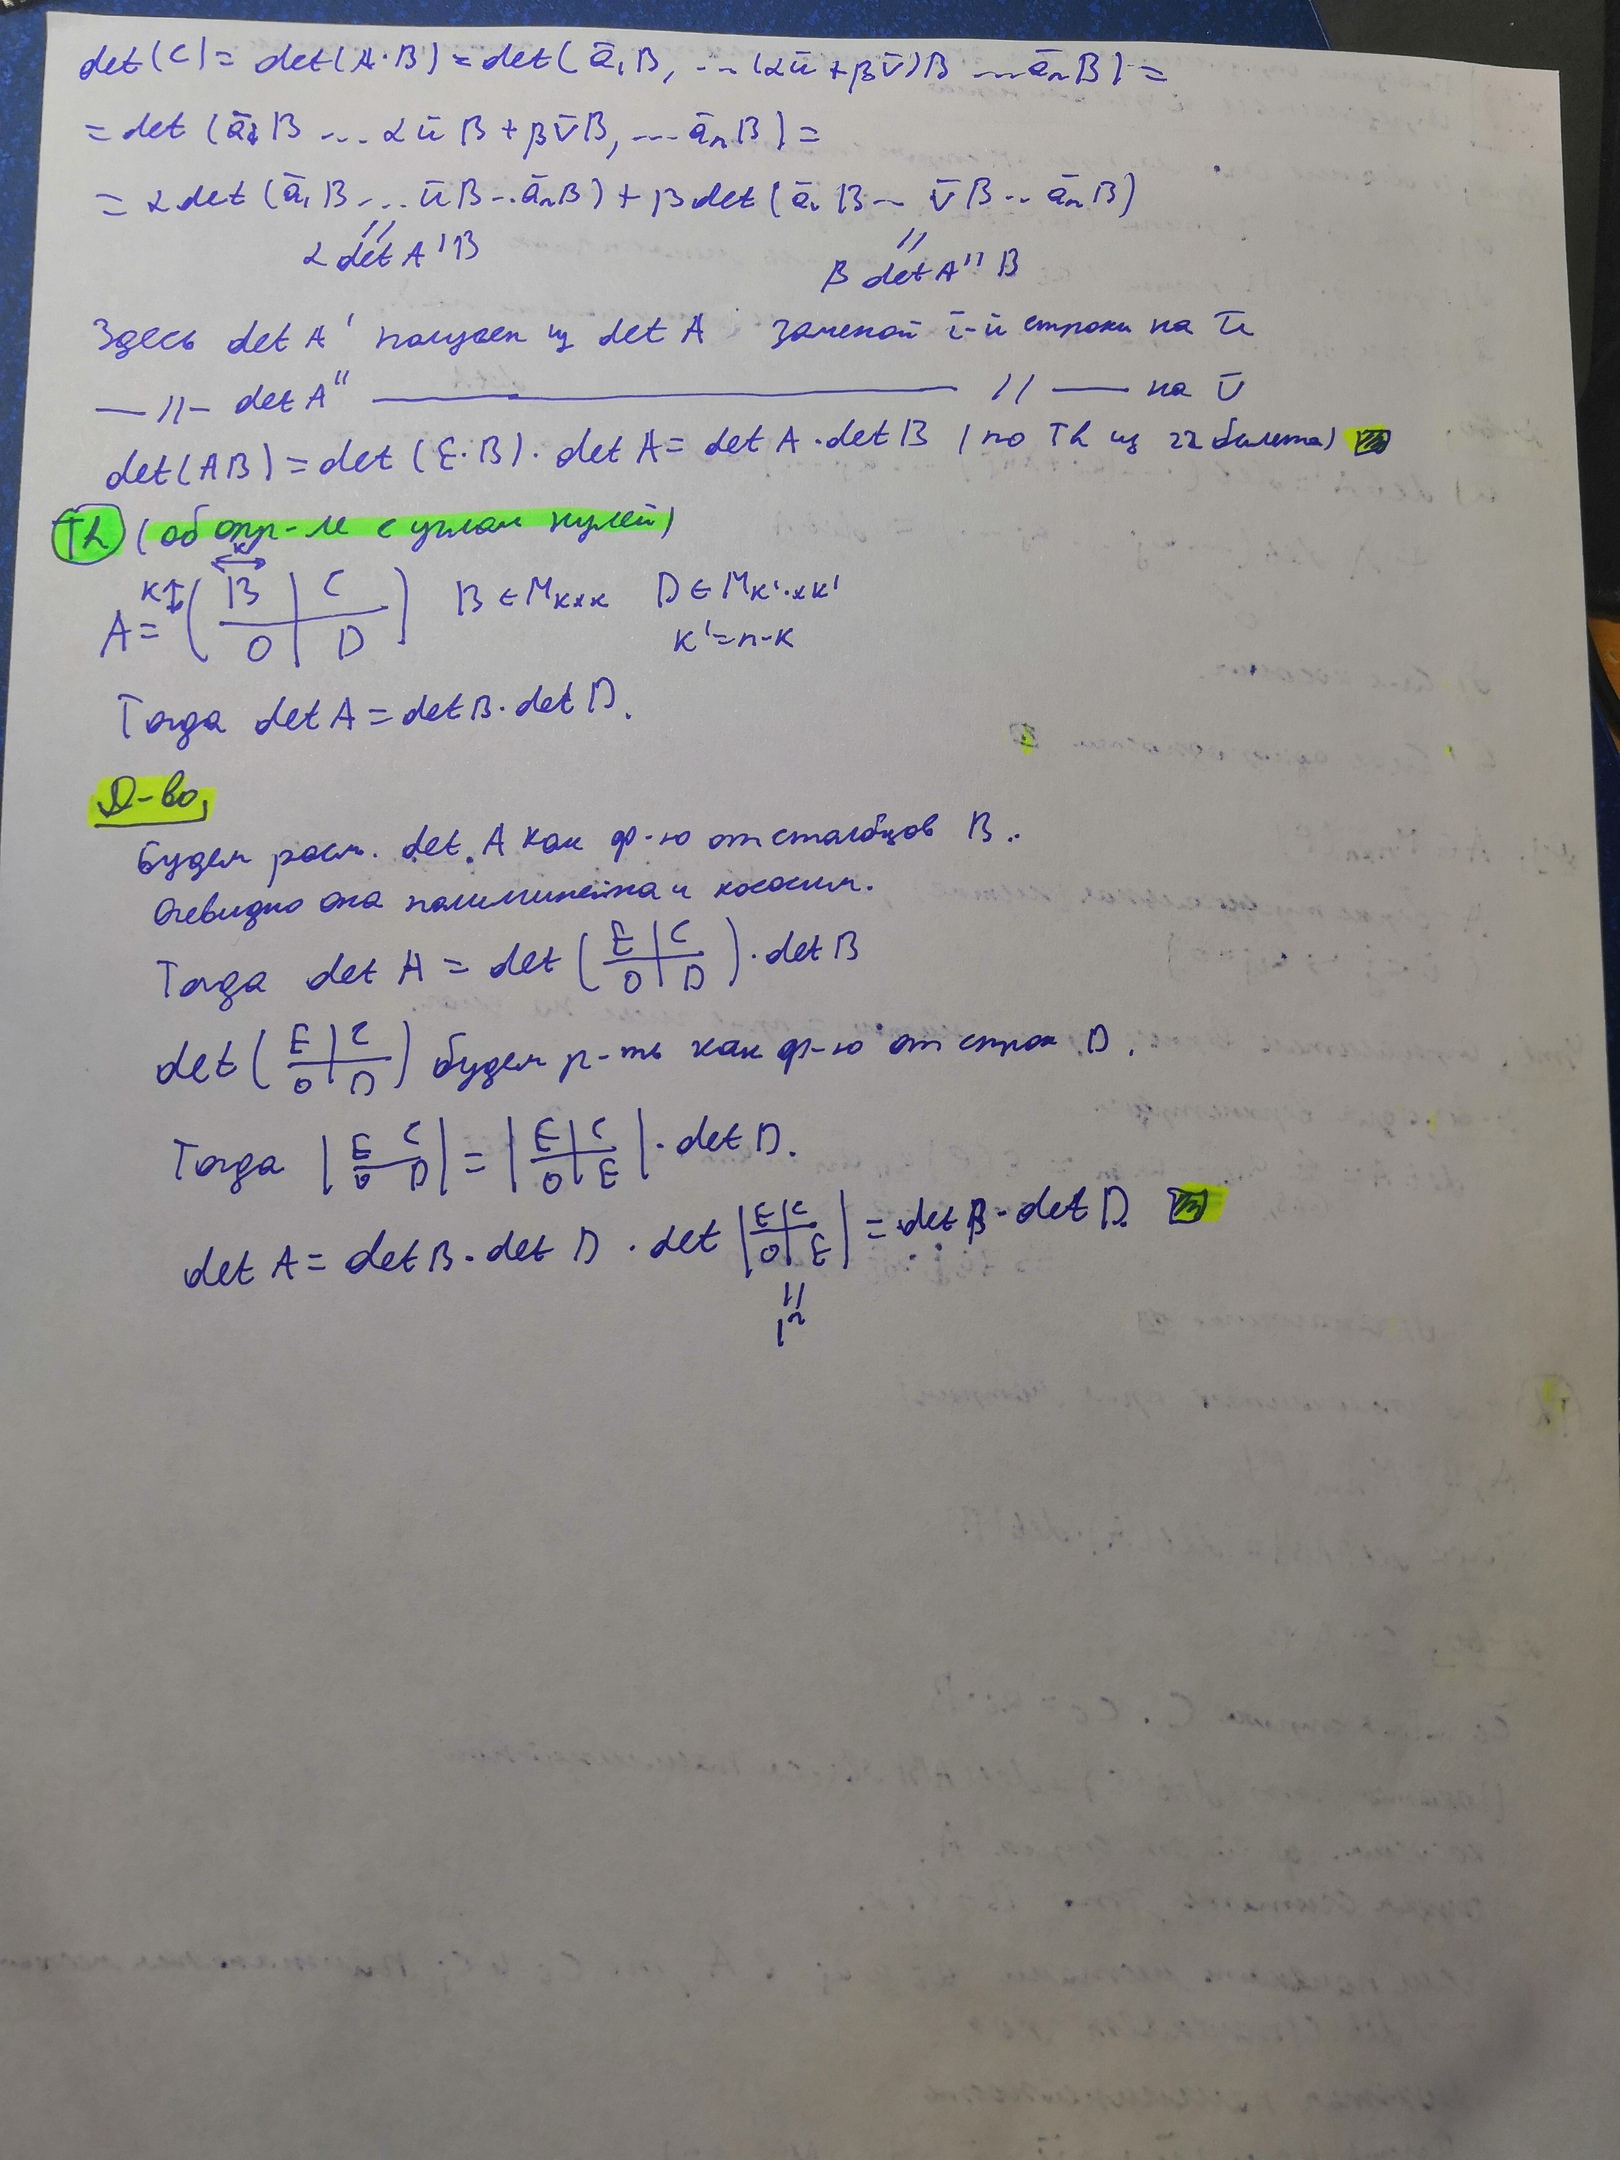 det(C) = det(A·B) = det(ā₁B, ... (αū+βv̄)B ... āₙB) =
= det (ā₁B ... αūB + βv̄B, ... āₙB) =
= α det (ā₁B ... ūB ... āₙB) + β det (ā₁B ... v̄B ... āₙB)
// //
α det A'B β det A''B
Здесь det A' получен из det A заменой i-й строки на ū
—//— det A'' ——— // —— на v̄
det(AB) = det(E·B)·det A = det A·det B (по Th из 22 билета)
Th (об опр-ле с углом нулей)
к
A = к↕ ( B | C ) B ∈ M к×к D ∈ M к'×к'
( 0 | D ) к' = n-к
Тогда det A = det B·det D.
Д-во,
Будем расм. det A как ф-ю от столбцов B.
Очевидно она полилинейна и кососим.
Тогда det A = det ( E | C / 0 | D )·det B
det ( E | C / 0 | D ) будем р-ть как ф-ю от строк D.
Тогда | E C / 0 D | = | E | C / 0 | E |·det D.
det A = det B·det D·det | E | C / 0 | E | = det B·det D.
//
1ⁿ